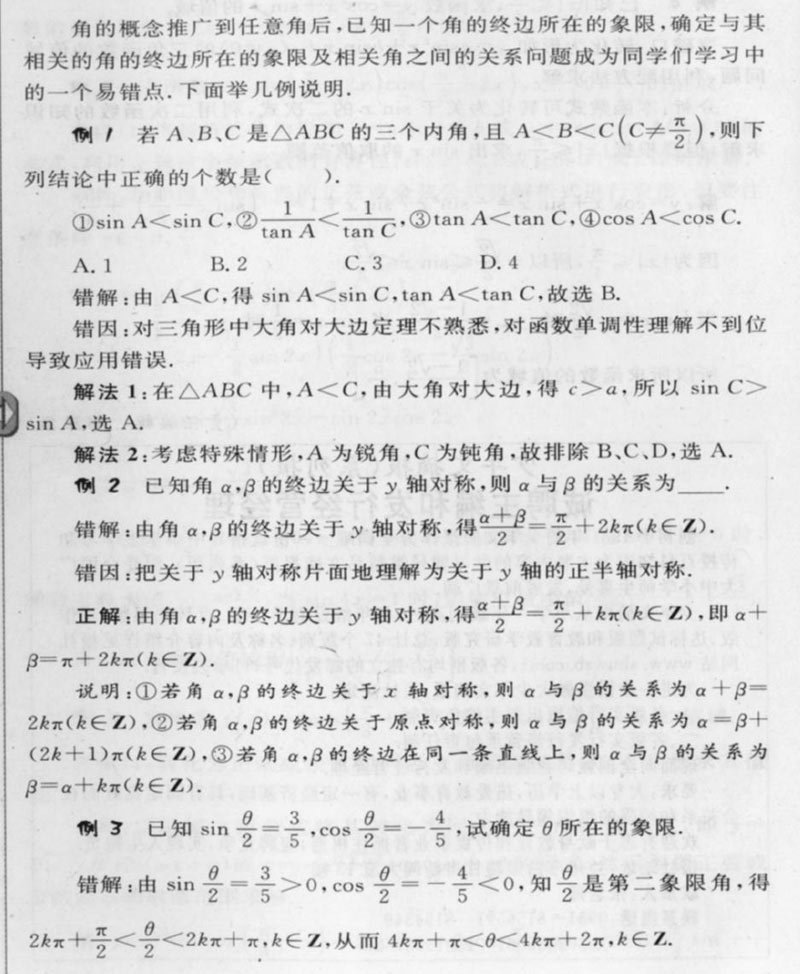 角的概念推广到任意角后,已知一个角的终边所在的象限,确定与其
相关的角的终边所在的象限及相关角之间的关系问题成为同学们学习中
的一个易错点.下面举几例说明.
例1 若 A、B、C 是△ABC 的三个内角,且 A<B<C(C≠π/2),则下
列结论中正确的个数是( ).
①sin A<sin C,②1/tan A<1/tan C,③tan A<tan C,④cos A<cos C.
A. 1 B. 2 C. 3 D. 4
错解:由 A<C,得 sin A<sin C,tan A<tan C,故选 B.
错因:对三角形中大角对大边定理不熟悉,对函数单调性理解不到位
导致应用错误.
解法 1:在△ABC 中,A<C,由大角对大边,得 c>a,所以 sin C>
sin A,选 A.
解法 2:考虑特殊情形,A 为锐角,C 为钝角,故排除 B、C、D,选 A.
例2 已知角 α,β 的终边关于 y 轴对称,则 α 与 β 的关系为____.
错解:由角 α,β 的终边关于 y 轴对称,得(α+β)/2=π/2+2kπ(k∈Z).
错因:把关于 y 轴对称片面地理解为关于 y 轴的正半轴对称.
正解:由角 α,β 的终边关于 y 轴对称,得(α+β)/2=π/2+kπ(k∈Z),即 α+
β=π+2kπ(k∈Z).
说明:①若角 α,β 的终边关于 x 轴对称,则 α 与 β 的关系为 α+β=
2kπ(k∈Z),②若角 α,β 的终边关于原点对称,则 α 与 β 的关系为 α=β+
(2k+1)π(k∈Z),③若角 α,β 的终边在同一条直线上,则 α 与 β 的关系为
β=α+kπ(k∈Z).
例3 已知 sin θ/2=3/5,cos θ/2=-4/5,试确定 θ 所在的象限.
错解:由 sin θ/2=3/5>0,cos θ/2=-4/5<0,知 θ/2 是第二象限角,得
2kπ+π/2<θ/2<2kπ+π,k∈Z,从而 4kπ+π<θ<4kπ+2π,k∈Z.